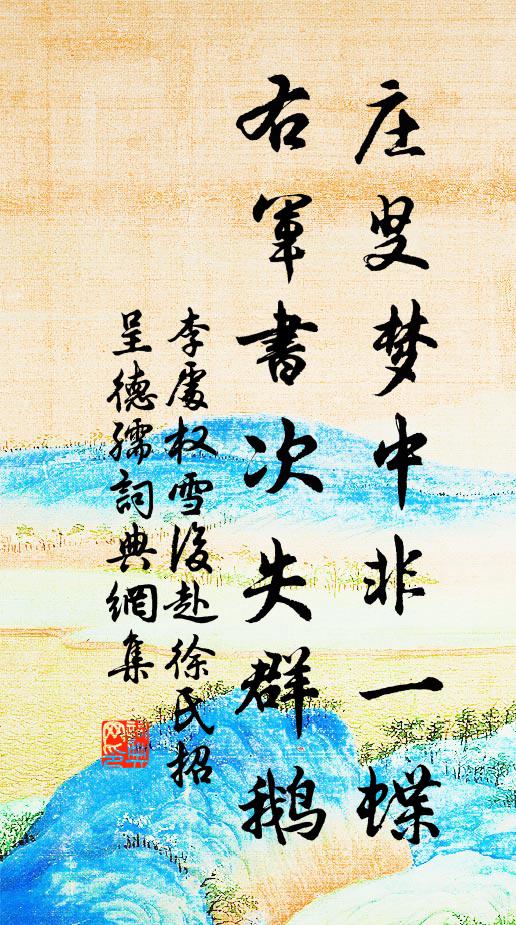 庄叟梦中非一蝶
右军书次失群鹅
李處权雪後赴徐民招
呈德孺詞典網集